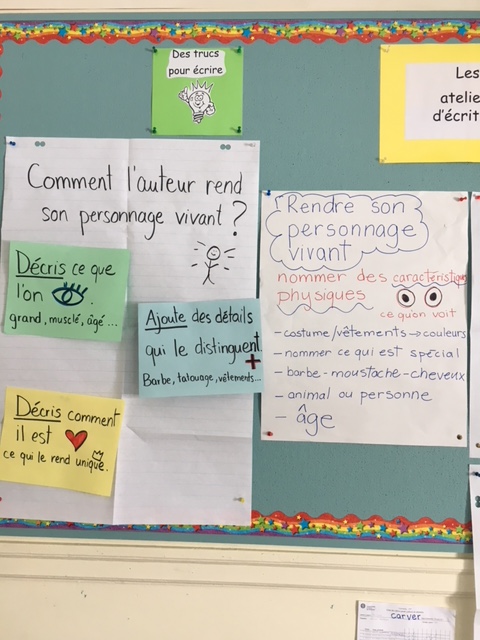 Des trucs
pour écrire
Les
atelie
d'écrit
Comment l'auteur rend
son personnage vivant ?
Décris ce que
l'on
grand, musclé, âgé...
Ajoute des détails
qui le distinguent
+
Barbe, tatouage, vêtements...
Décris comment
il est
ce qui le rend unique.
Rendre son
personnage
vivant
nommer des caractéristiques
physiques
ce qu'on voit
- costume/vêtements → couleurs
- nommer ce qui est spécial
- barbe - moustache - cheveux
- animal ou personne
- âge
carver